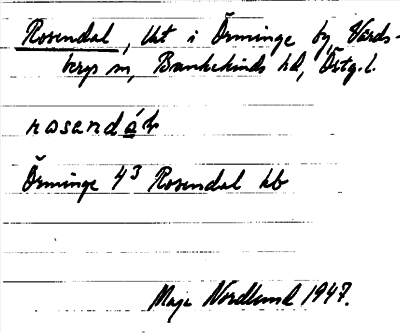 Rosendal, lht i Örminge by, Vårds-
bergs sn, Bankekinds hd, Östg.l.
rosendá
Örminge 4³ Rosendal hb
Maja Nordlund 1947.